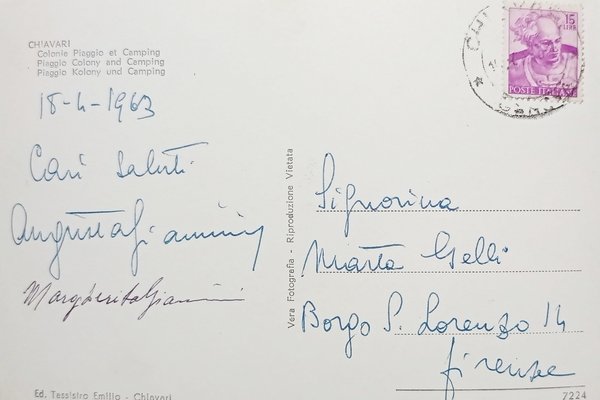 CHIAVARI
Colonie Piaggio et Camping
Piaggio Colony and Camping
Piaggio Kolony und Camping
18-4-1963
Cari saluti
Augusta Giannini
Margherita Giannini
Vera Fotografia - Riproduzione Vietata
15
LIRE
POSTE ITALIANE
Signorina
Marta Gelli
Borgo S. Lorenzo 14
Firenze
Ed. Tassistro Emilio - Chiavari
7224